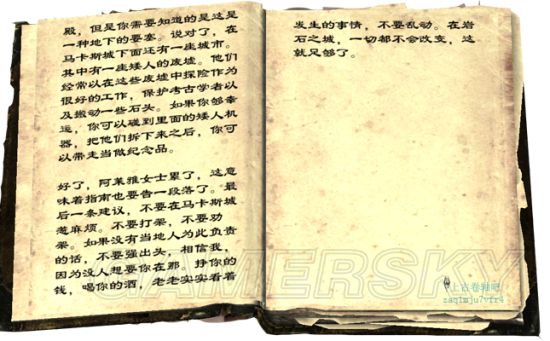 殿，但是你需要知道的是这是
一种地下的要塞。说对了，在
马卡斯城下面还有一座城市。
其中有一座矮人的废墟。他们
经常以在这些废墟中探险作为
很好的工作，保护考古学者以
及搬动一些石头。如果你够幸
运，你可以碰到里面的矮人机
器，把他们拆下来之后，你可
以带走当做纪念品。
好了，阿茉雅女士累了，这意
味着指南也要告一段落了。最
后一条建议，不要在马卡斯城
惹麻烦。不要打架，不要劝
架。如果没有当地人为此负责
的话，不要强出头，相信我，
因为没人想要你在那，挣你的
钱，喝你的酒，老老实实看着
发生的事情，不要乱动。在岩
石之城，一切都不会改变，这
就足够了。
GAMERSKY
上古卷轴吧
zaq1mju7vfr4